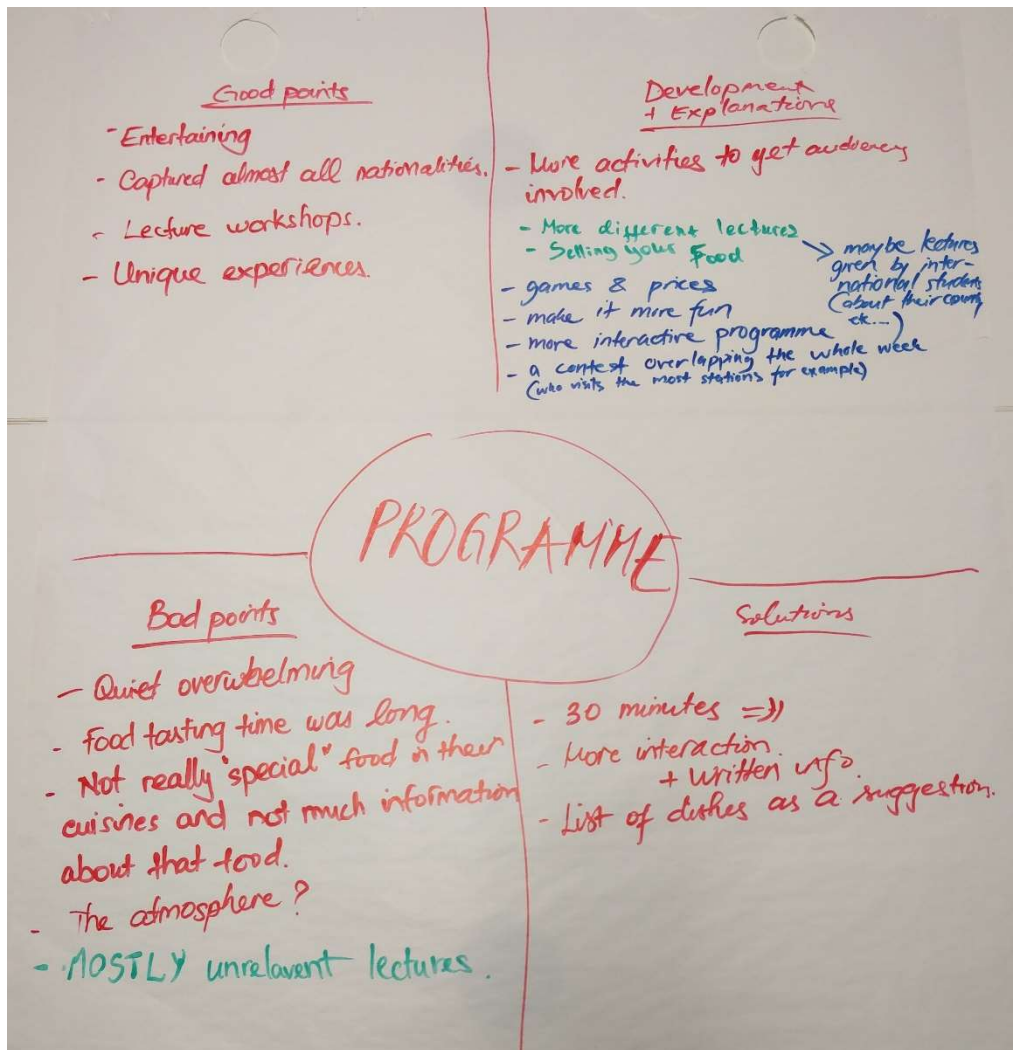 Good points
- Entertaining
- Captured almost all nationalities.
- Lecture workshops.
- Unique experiences.
Development
+ Explanations
- More activities to get audiency
involved.
- More different lectures
- Selling your Food
maybe lectures
given by inter-
national students
(about their country
etc...)
- games & prices
- make it more fun
- more interactive programme
- a contest overlapping the whole week
(who visits the most stations for example)
PROGRAMME
Bad points
- Quiet overwhelming
- Food tasting time was long.
- Not really "special" food in their
cuisines and not much information
about that food.
- The atmosphere?
- MOSTLY unrelavent lectures.
Solutions
- 30 minutes =>)
- More interaction.
+ written info.
- List of dishes as a suggestion.